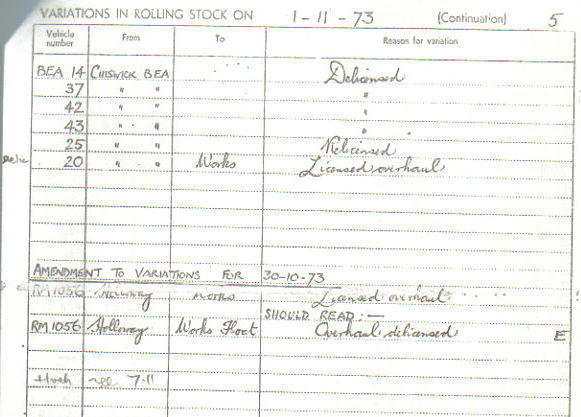 VARIATIONS IN ROLLING STOCK ON 1-11-73 (Continuation) 5
Vehicle number From To Reason for variation
BEA 14 CHISWICK BEA Delicensed
37 " " "
42 " " "
43 " " "
25 " " Relicensed
20 " " Works Licensed overhaul
AMENDMENT TO VARIATIONS FOR 30-10-73
RM1056 Holloway Works Licensed overhaul
SHOULD READ:—
RM1056 Holloway Works Float Overhaul delicensed E
7.11